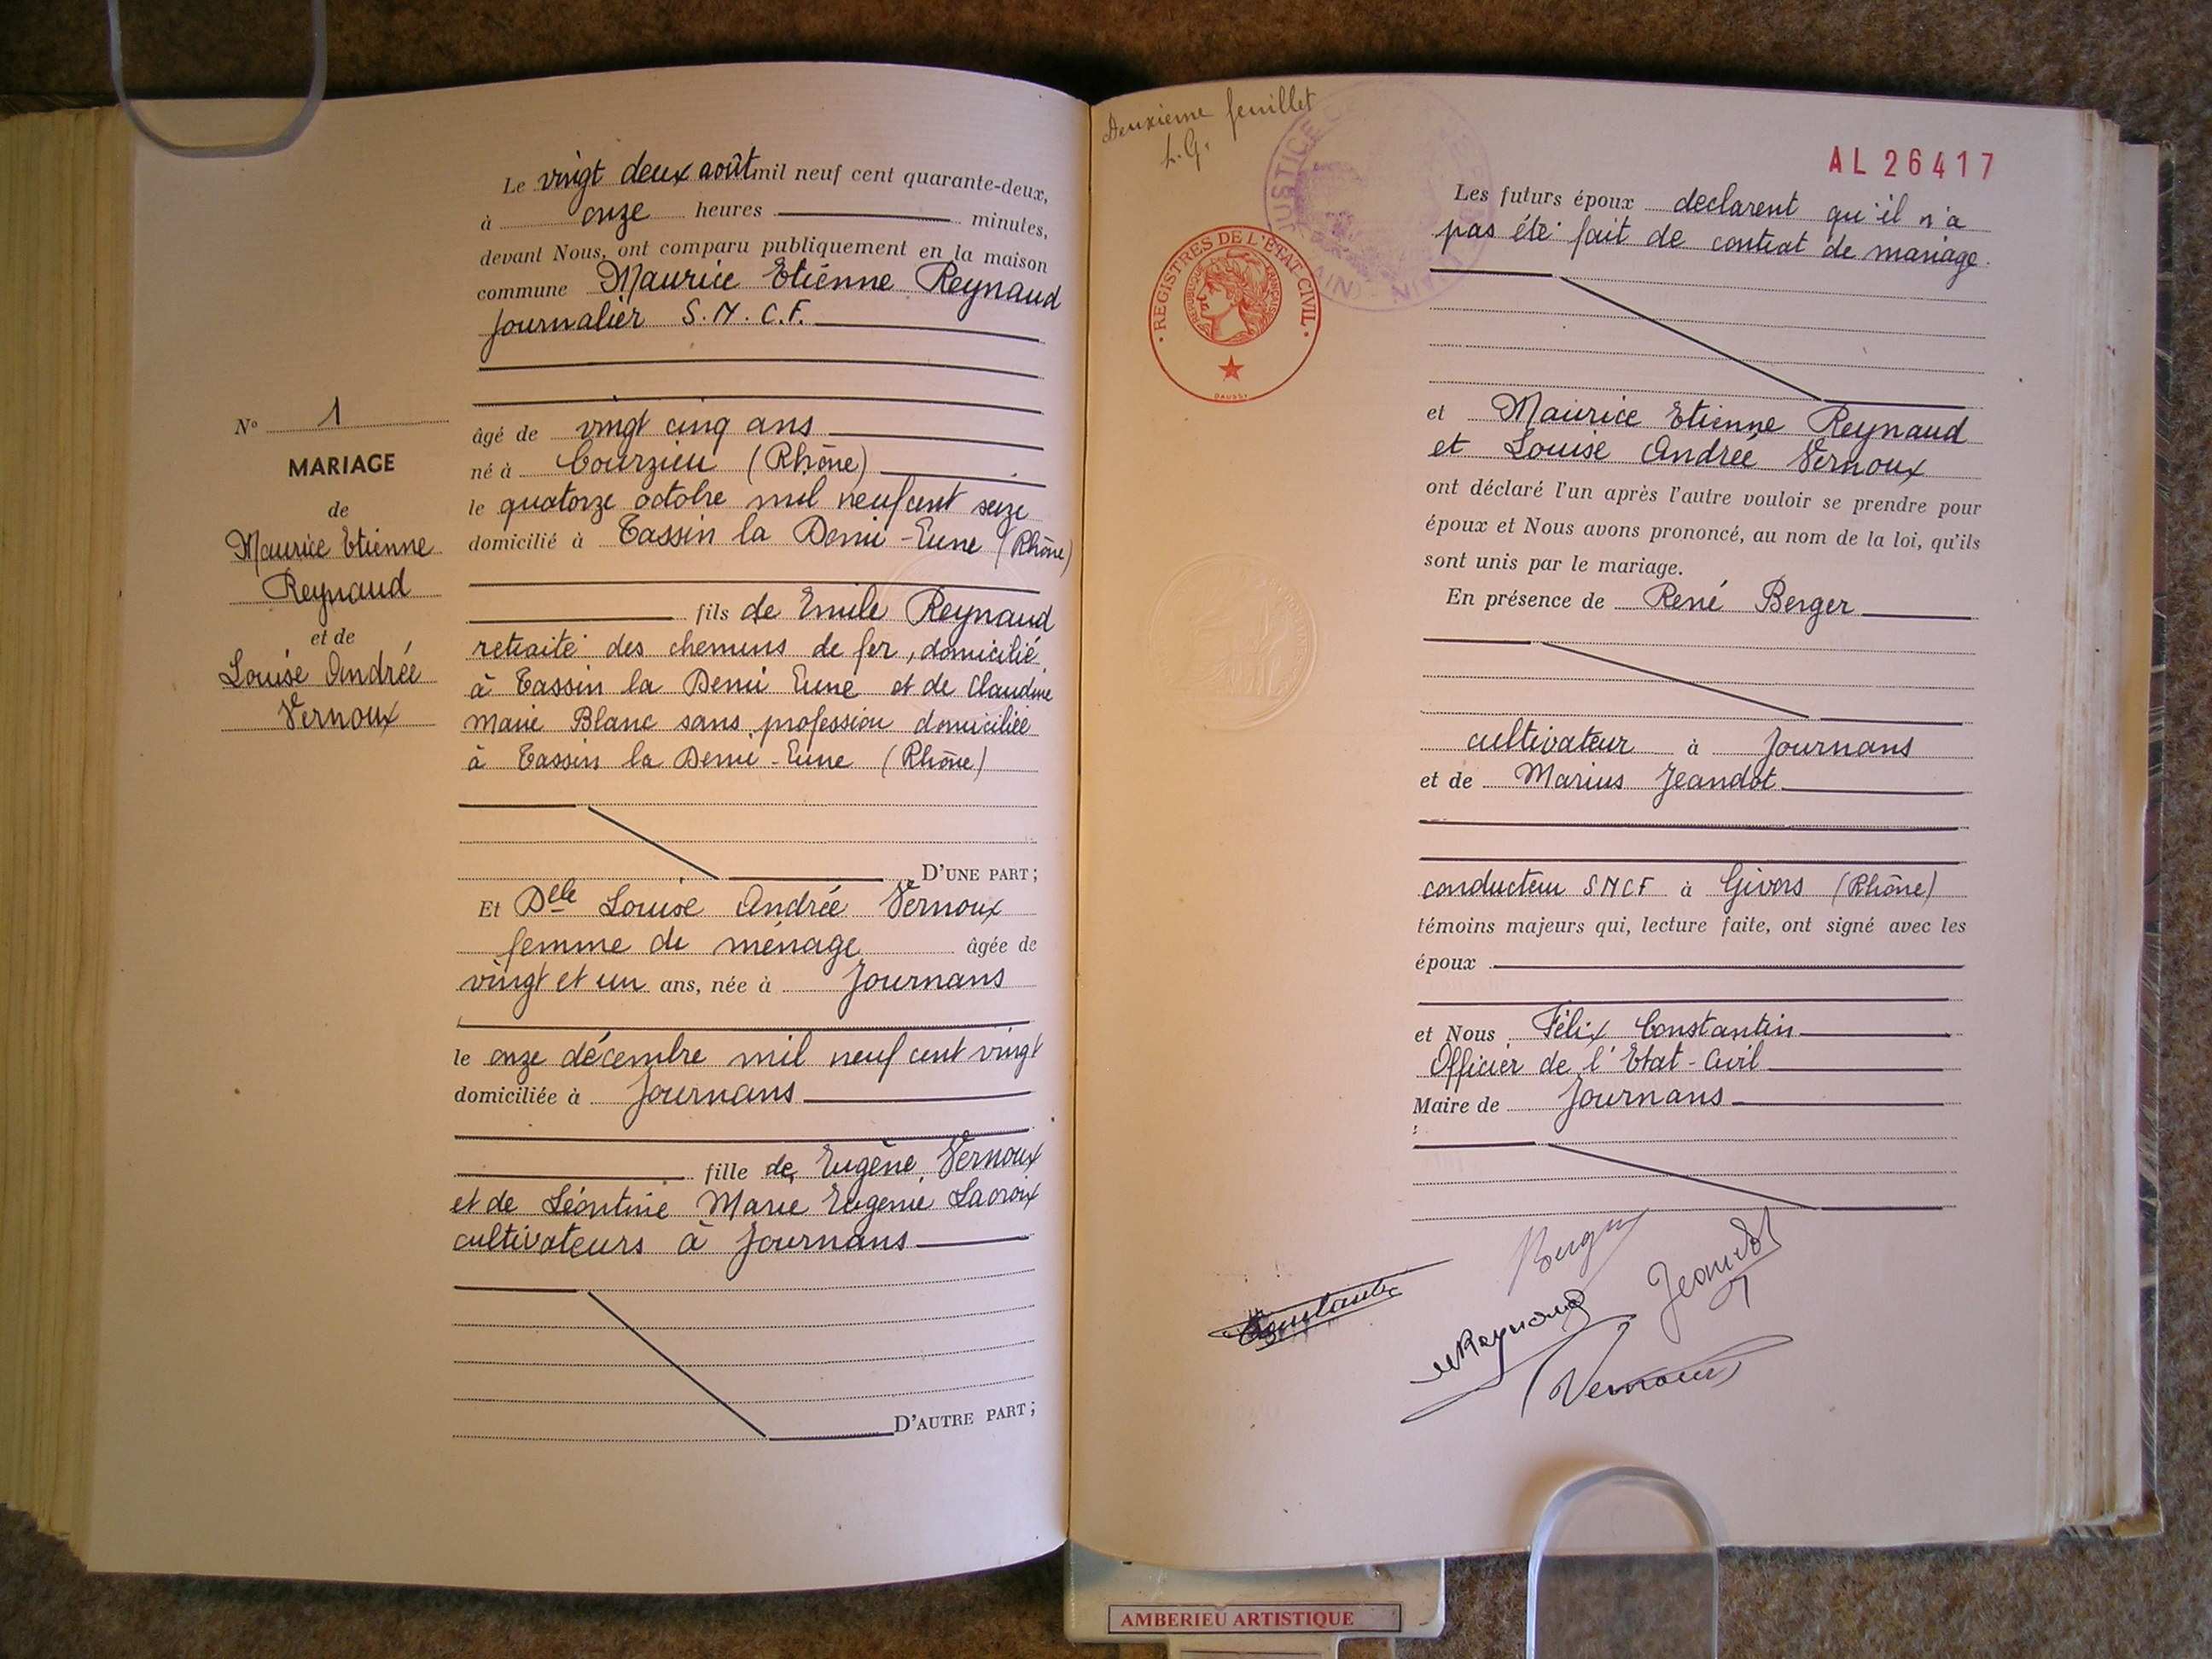 Le vingt deux août mil neuf cent quarante-deux,
à onze heures minutes,
devant Nous, ont comparu publiquement en la maison
commune Maurice Etienne Reynaud
journalier S.N.C.F.
âgé de vingt cinq ans
né à Courzieu (Rhône)
le quatorze octobre mil neuf cent seize
domicilié à Tassin la Demi-Lune (Rhône)
fils de Emile Reynaud
retraité des chemins de fer, domicilié
à Tassin la Demi Lune et de Claudine
Marie Blanc sans profession domiciliée
à Tassin la Demi-Lune (Rhône)
D'UNE PART;
Et Delle Louise Andrée Vernoux
femme de ménage âgée de
vingt et un ans, née à Journans
le onze décembre mil neuf cent vingt
domiciliée à Journans
fille de Eugène Vernoux
et de Léontine Marie Eugenie Lacroix
cultivateurs à Journans
D'AUTRE PART;
No 1
MARIAGE
de
Maurice Etienne
Reynaud
et de
Louise Andrée
Vernoux
Deuxième feuillet
L.G.
JUSTICE
AIN
REGISTRES DE L'ÉTAT CIVIL
RÉPUBLIQUE FRANÇAISE
DAUSSY
AL 26417
Les futurs époux declarent qu'il n'a
pas été fait de contrat de mariage.
et Maurice Etienne Reynaud
et Louise Andrée Vernoux
ont déclaré l'un après l'autre vouloir se prendre pour
époux et Nous avons prononcé, au nom de la loi, qu'ils
sont unis par le mariage.
En présence de René Berger
cultivateur à Journans
et de Marius Jeandot
conducteur SNCF à Givors (Rhône)
témoins majeurs qui, lecture faite, ont signé avec les
époux
et Nous Félix Constantin
Officier de l'Etat-Civil
Maire de Journans
Berger
Jeandot
Constantin
Reynaud
Vernoux
AMBERIEU ARTISTIQUE